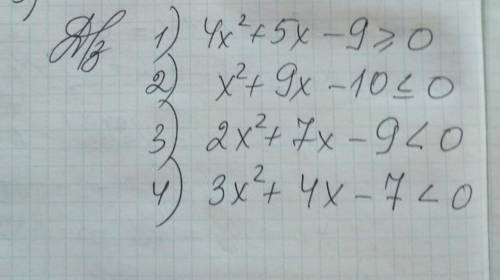 Дз 1) 4x²+5x-9≥0
2) x²+9x-10≤0
3) 2x²+7x-9<0
4) 3x²+4x-7<0